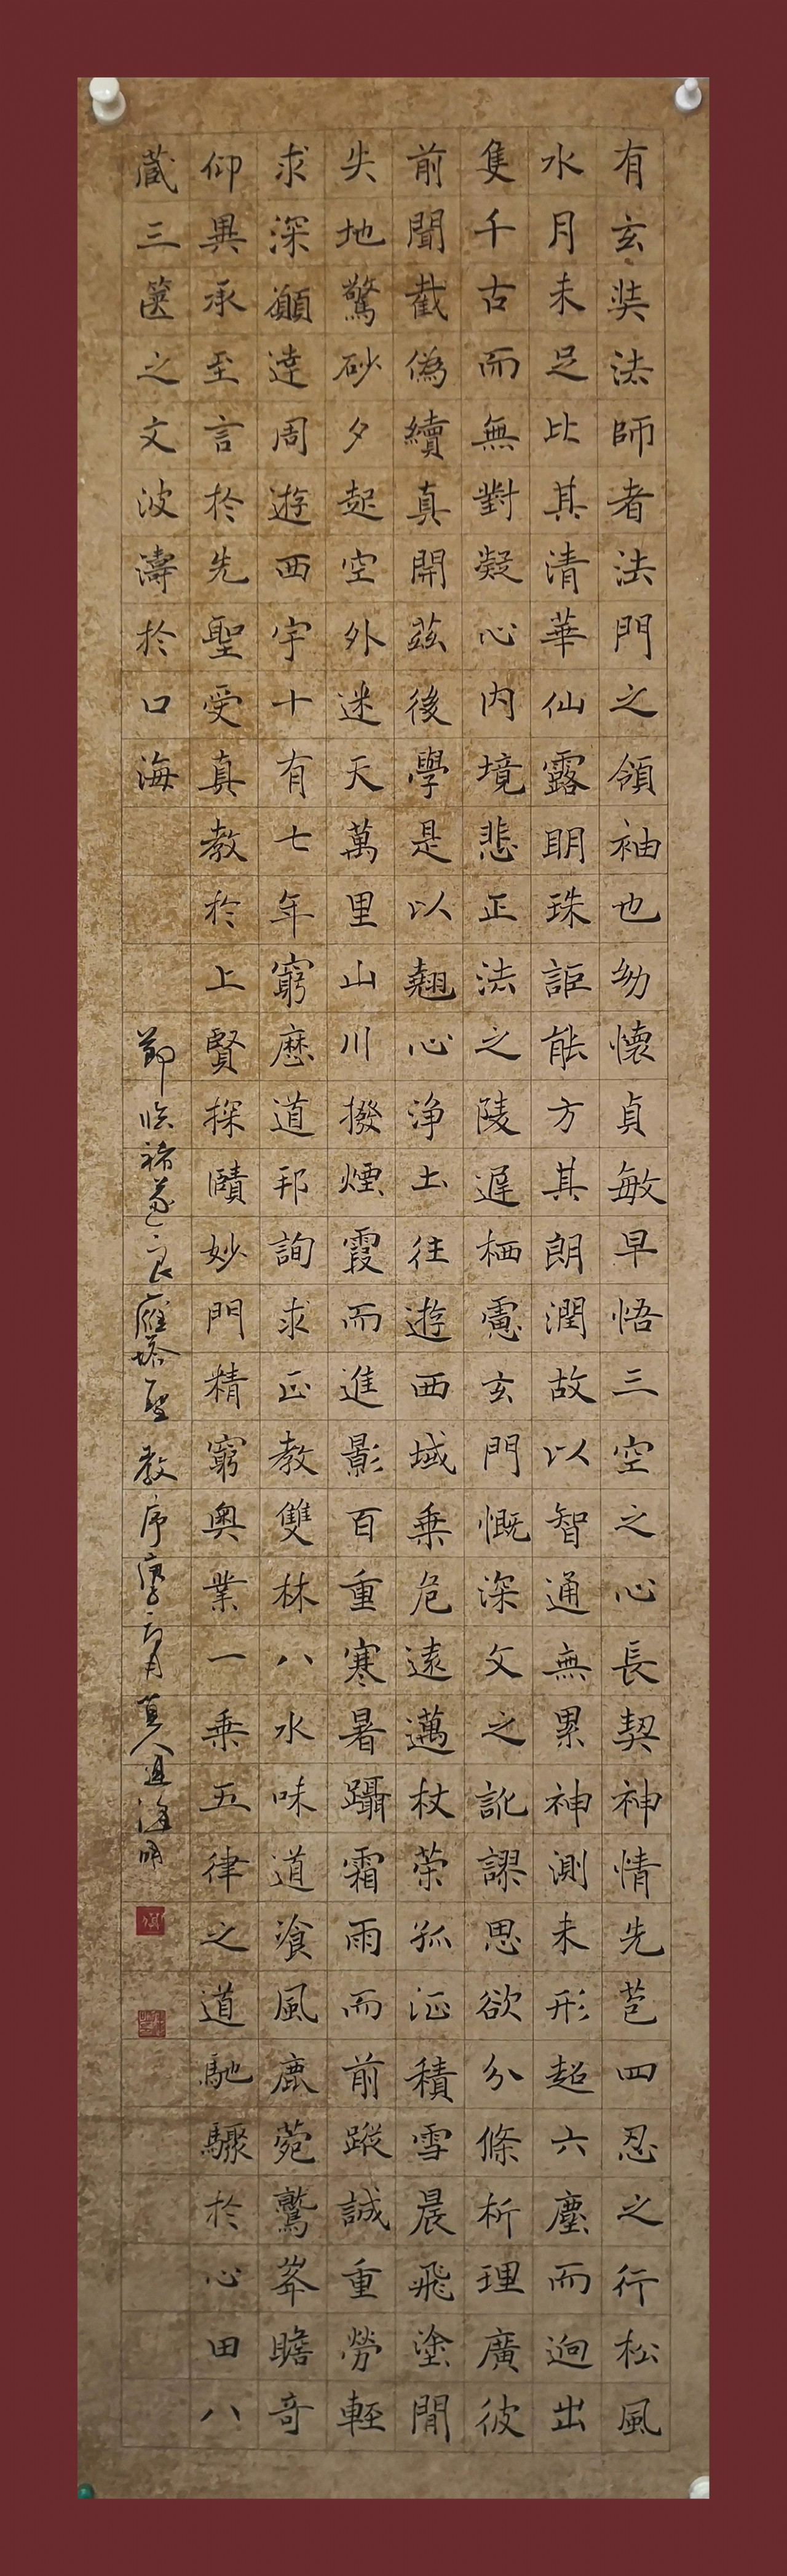 有玄奘法師者法門之領袖也幼懷貞敏早悟三空之心長契神情先苞四忍之行松風
水月未足比其清華仙露明珠詎能方其朗潤故以智通無累神測未形超六塵而迥出
隻千古而無對凝心內境悲正法之陵遲栖慮玄門慨深文之訛謬思欲分條析理廣彼
前聞截偽續真開茲後學是以翹心淨土往遊西域乗危遠邁杖策孤征積雪晨飛塗間
失地驚砂夕起空外迷天萬里山川撥煙霞而進影百重寒暑躡霜雨而前蹤誠重勞輕
求深願達周遊西宇十有七年窮歷道邦詢求正教雙林八水味道飡風鹿菀鷲峯瞻奇
仰異承至言於先聖受真教於上賢探賾妙門精窮奧業一乗五律之道馳驟於心田八
藏三篋之文波濤於口海
節臨褚遂良雁塔聖教序